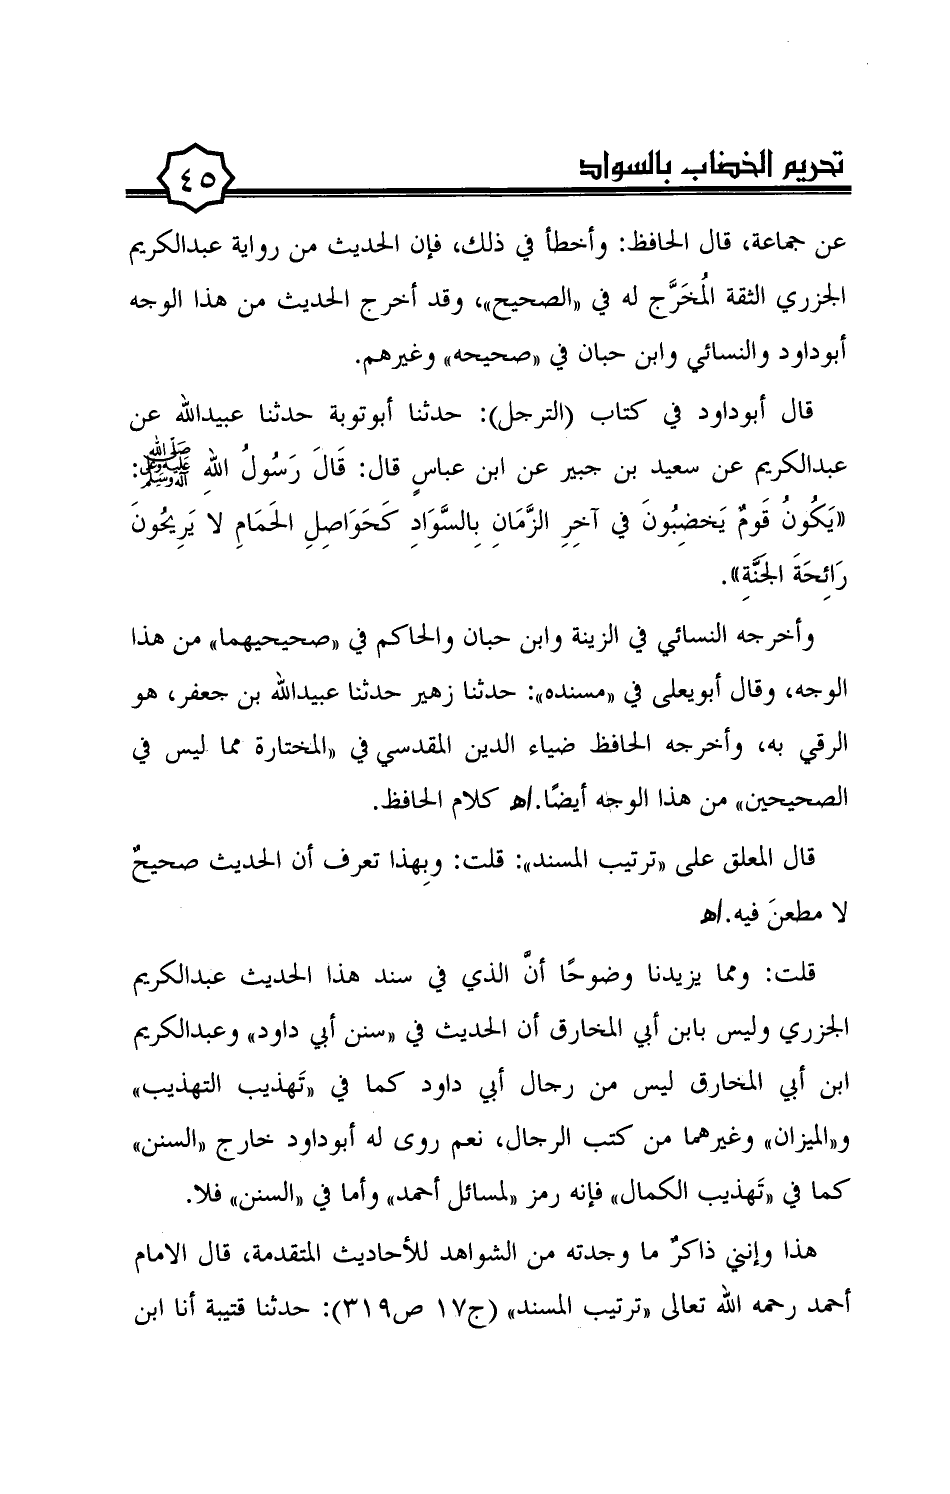 تحريم الخضاب بالسواد
٤٥
عن جماعة، قال الحافظ: وأخطأ في ذلك، فإن الحديث من رواية عبدالكريم
الجزري الثقة المُخَرَّج له في «الصحيح»، وقد أخرج الحديث من هذا الوجه
أبوداود والنسائي وابن حبان في «صحيحه» وغيرهم.
قال أبوداود في كتاب (الترجل): حدثنا أبوتوبة حدثنا عبيدالله عن
عبدالكريم عن سعيد بن جبير عن ابن عباسٍ قال: قَالَ رَسُولُ اللهِ صلى الله عليه وآله وسلم:
«يَكُونُ قَومٌ يَخضِبُونَ في آخِرِ الزَّمَانِ بِالسَّوَادِ كَحَوَاصِلِ الحَمَامِ لا يَرِيحُونَ
رَائِحَةَ الجَنَّةِ».
وأخرجه النسائي في الزينة وابن حبان والحاكم في «صحيحيهما» من هذا
الوجه، وقال أبويعلى في «مسنده»: حدثنا زهير حدثنا عبيدالله بن جعفر، هو
الرقي به، وأخرجه الحافظ ضياء الدين المقدسي في «المختارة مما ليس في
الصحيحين» من هذا الوجه أيضًا.اﻫ كلام الحافظ.
قال المعلق على «ترتيب المسند»: قلت: وبِهذا تعرف أن الحديث صحيحٌ
لا مطعنَ فيه.اﻫ
قلت: ومما يزيدنا وضوحًا أنَّ الذي في سند هذا الحديث عبدالكريم
الجزري وليس بابن أبي المخارق أن الحديث في «سنن أبي داود» وعبدالكريم
ابن أبي المخارق ليس من رجال أبي داود كما في «تَهذيب التهذيب»
و«الميزان» وغيرهما من كتب الرجال، نعم روى له أبوداود خارج «السنن»
كما في «تَهذيب الكمال» فإنه رمز «لمسائل أحمد» وأما في «السنن» فلا.
هذا وإنني ذاكرٌ ما وجدته من الشواهد للأحاديث المتقدمة، قال الامام
أحمد رحمه الله تعالى «ترتيب المسند» (ج١٧ ص٣١٩): حدثنا قتيبة أنا ابن